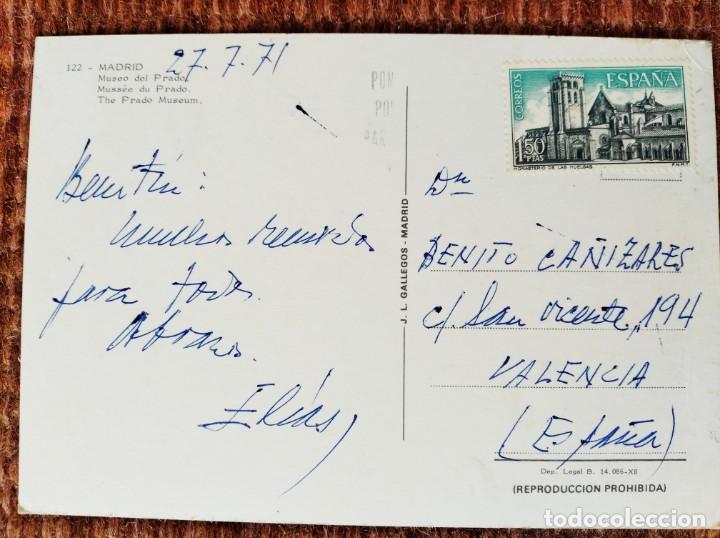 122 - MADRID
Museo del Prado.
Mussée du Prado.
The Prado Museum.
27-7-71
PON
CORREOS
ESPAÑA
1,50 PTAS
MONASTERIO DE LAS HUELGAS
F.N.M.T.
muchos recuerdos
para todos.
Abrazos.
Elías
J. L. GALLEGOS - MADRID
Dn
BENITO CAÑIZARES
c/. San Vicente, 194
VALENCIA
(España)
Dep. Legal B. 14.086-XII
(REPRODUCCION PROHIBIDA)
todocoleccion
todocoleccion.net